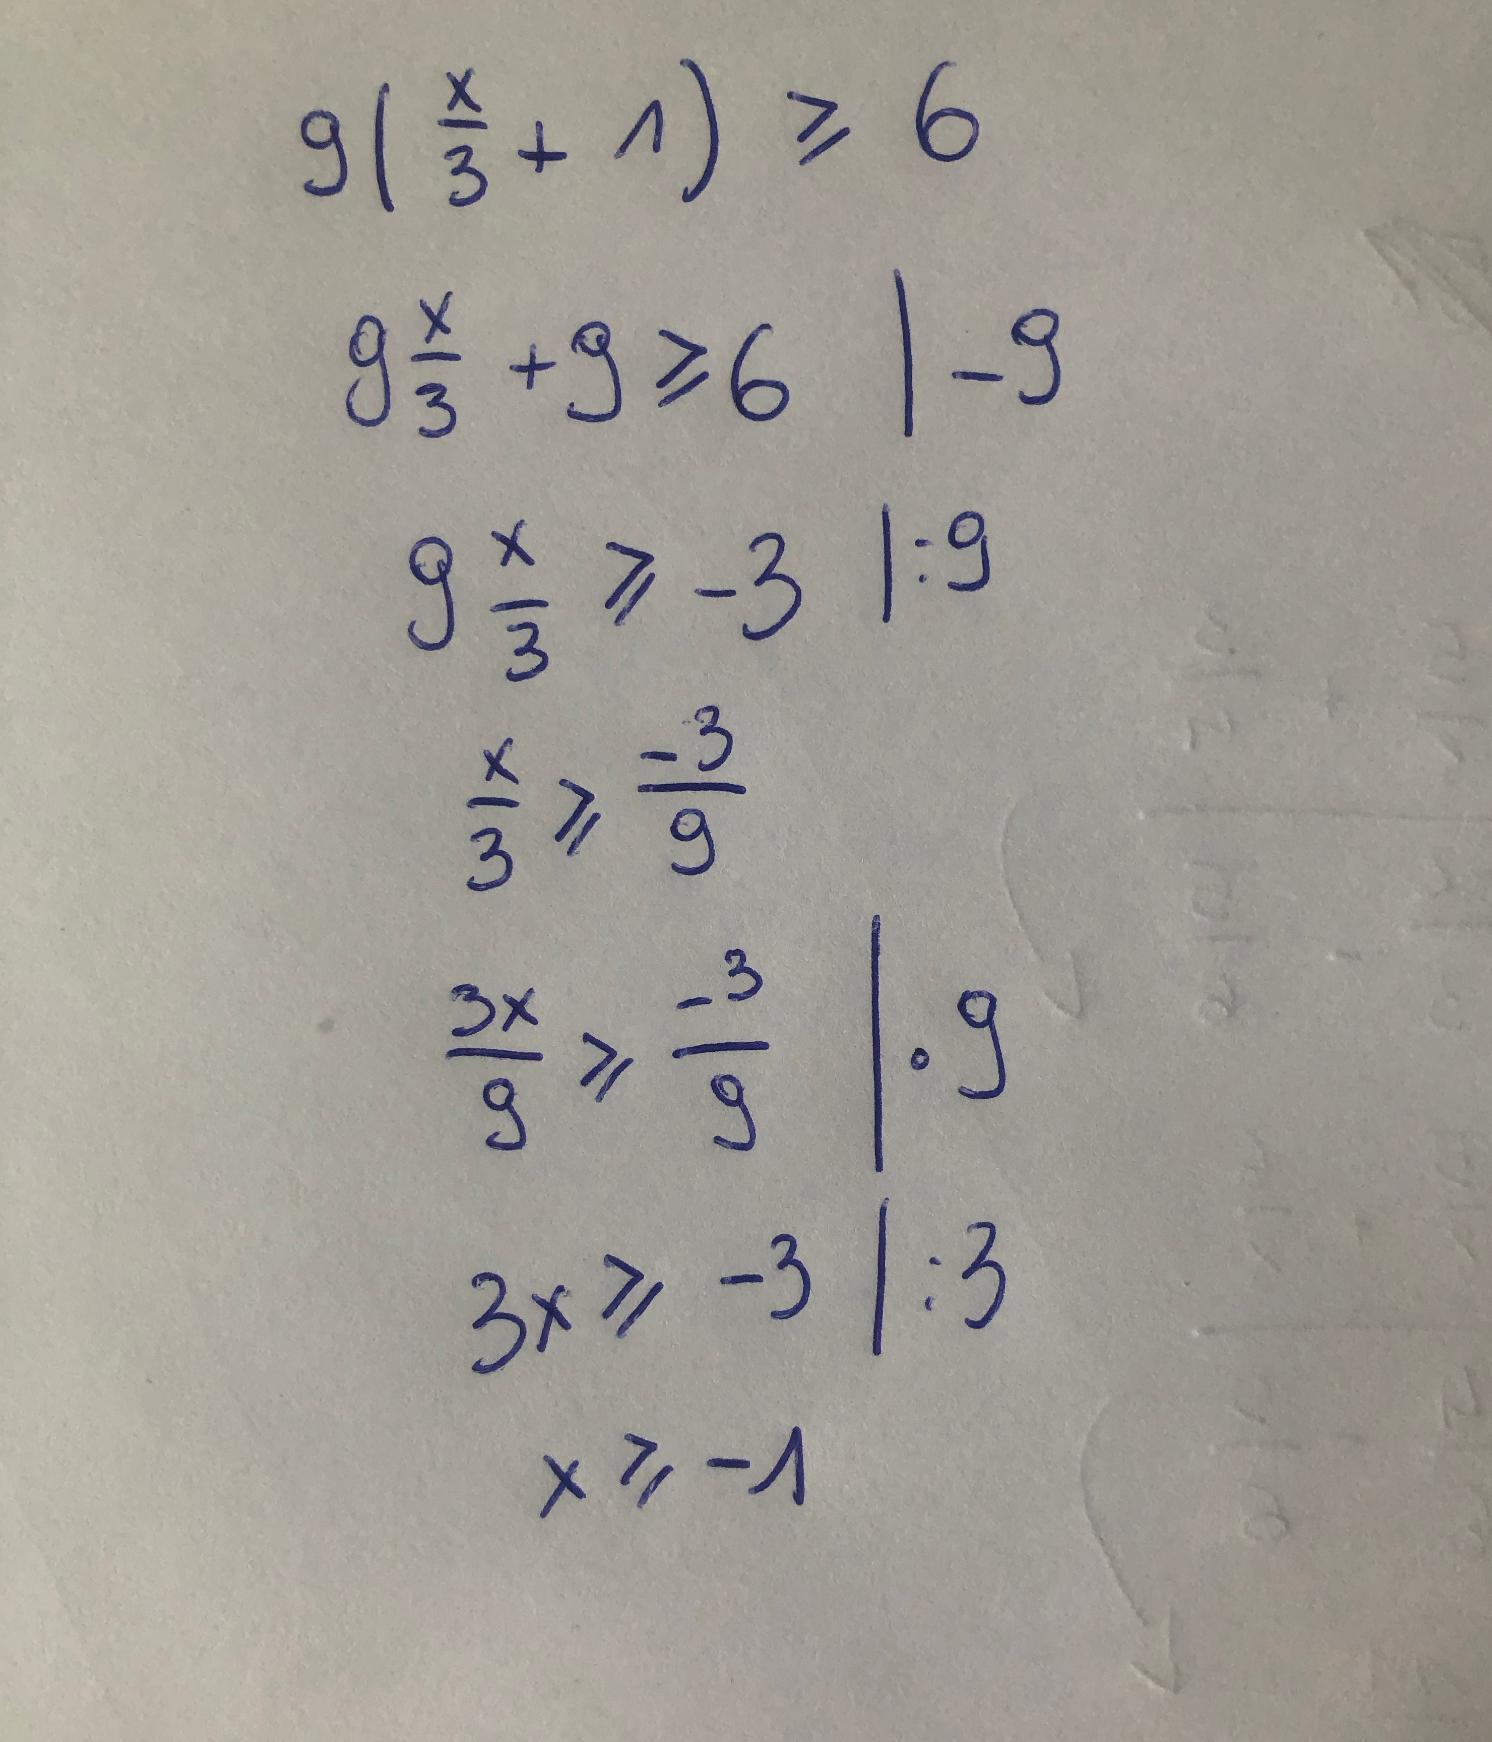 9(x/3 + 1) ≥ 6
9 x/3 + 9 ≥ 6 | -9
9 x/3 ≥ -3 | :9
x/3 ≥ -3/9
3x/9 ≥ -3/9 | · 9
3x ≥ -3 | :3
x ≥ -1